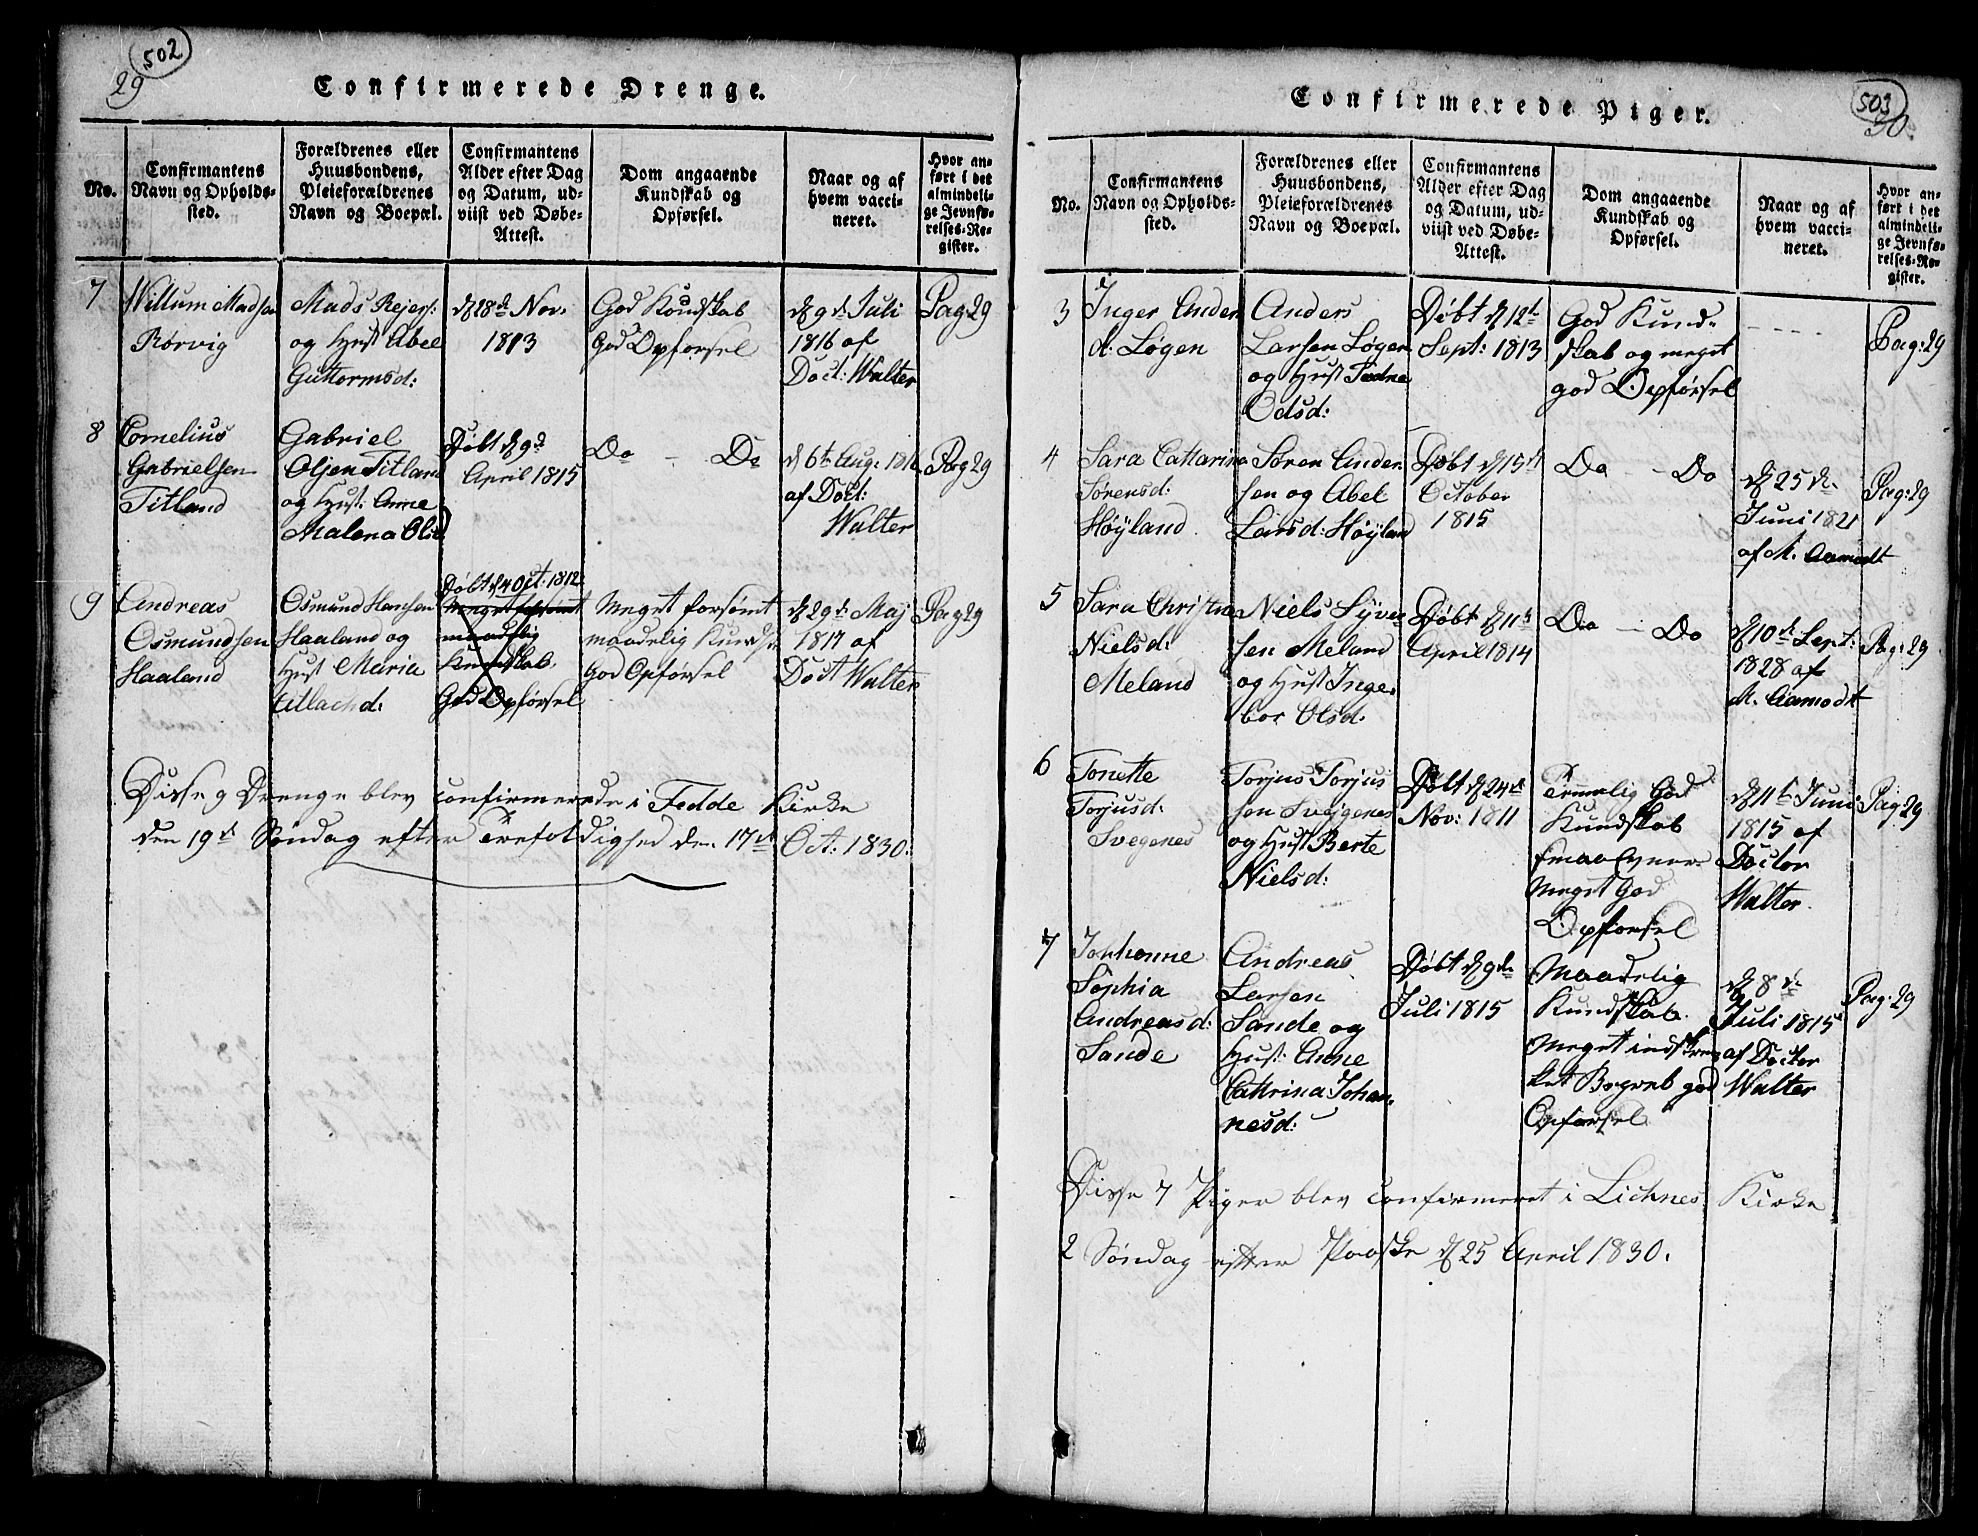 502
29
Confirmerede Drenge.
No.
Confirmantens
Navn og Opholds-
sted.
Forældrenes eller
Huusbondens,
Pleieforældrenes
Navn og Boepæl.
Confirmantens
Alder efter Dag
og Datum, ud-
viist ved Døbe-
Attest.
Dom angaaende
Kundskab og
Opførsel.
Naar og af
hvem vacci-
neret.
Hvor an-
ført i det
almindeli-
ge Jevnfø-
relses-Re-
gister.
7
Willum Madsen
Rørvig
Mads Rejers:
og Hust Abel
Guttormsd:
d 18d Nov.
1813
God Kundskab
God Opførsel
d 9d Juli
1816 af
Doct: Walter
Pag 29
8
Cornelius
Gabrielsen
Titland
Gabriel
Olsen Titland
og Hust: Anne
Malena Olsd
Døbt d 9d
April 1815
Do — Do
d 6t Aug: 1816
af Doct:
Walter
Pag 29
9
Andreas
Osmundsen
Haaland
Osmund Hansen
Haaland og
Hust Maria
Døbt d 4 Oct. 1812
Meget forsømt
maadelig
Kundskab.
God Opførsel
Meget forsømt
maadelig Kundsk
God Opførsel
d 29d Maj
1817 af
Doct Walter
Pag 29
Disse 9 Drenge blev confirmerede i Fedde Kirke
den 19d Søndag efter Trefoldighed den 17d Oct: 1830.
503
30.
Confirmerede Piger.
No.
Confirmantens
Navn og Opholds-
sted.
Forældrenes eller
Huusbondens,
Pleieforældrenes
Navn og Boepæl.
Confirmantens
Alder efter Dag
og Datum, ud-
viist ved Døbe-
Attest.
Dom angaaende
Kundskab og
Opførsel.
Naar og af
hvem vacci-
neret.
Hvor an-
ført i det
almindeli-
ge Jevnfø-
relses-Re-
gister.
3
Inger Anders
d. Løgen
Anders
Larsen Løgen
og Hust Tedne
Odsd:
Døbt d 12t
Sept: 1813
God Kund-
skab og meget
god Opførsel
- - - -
Pag: 29
4
Sara Catharina
Sørensd:
Høyland
Søren Ander-
sen og Abel
Larsd: Høyland
Døbt d 15d
October
1815
Do — Do
d 25d
Juni 1821
af M. Aamodt
Pag: 29
5
Sara Christina
Nielsd:
Meland
Niels Syver
sen Meland
og Hust Inge-
bor Olsd:
Døbt d 11d
April 1814
Do — Do
d 10d Sept:
1828 af
M. Aamodt
Pag: 29
6
Tonette
Torjusd:
Svegenes
Torjus Torjus
sen Svegenes
og Hust Berte
Nielsd:
Døbt d 24d
Nov: 1811
Temmelig God
Kundskab
smaa Evner
Meget God
Opførsel
d 11t Juni
1815 af
Doctor
Walter
Pag 29
7
Johanne
Sophia
Andreasd:
Sande
Andreas
Larsen
Sande og
Hust: Anne
Cathrina Johan-
nesd:
Døbt d 9d
Juli 1815
Maadelig
Kundskab.
Meget indskren
ket Begreb god
Opførsel
d 8d
Juli 1815
af Doctor
Walter
Pag: 29
Disse 7 Piger blev confirmeret i Lichnes Kirke
2 Søndag efter Paaske d 25 April 1830.